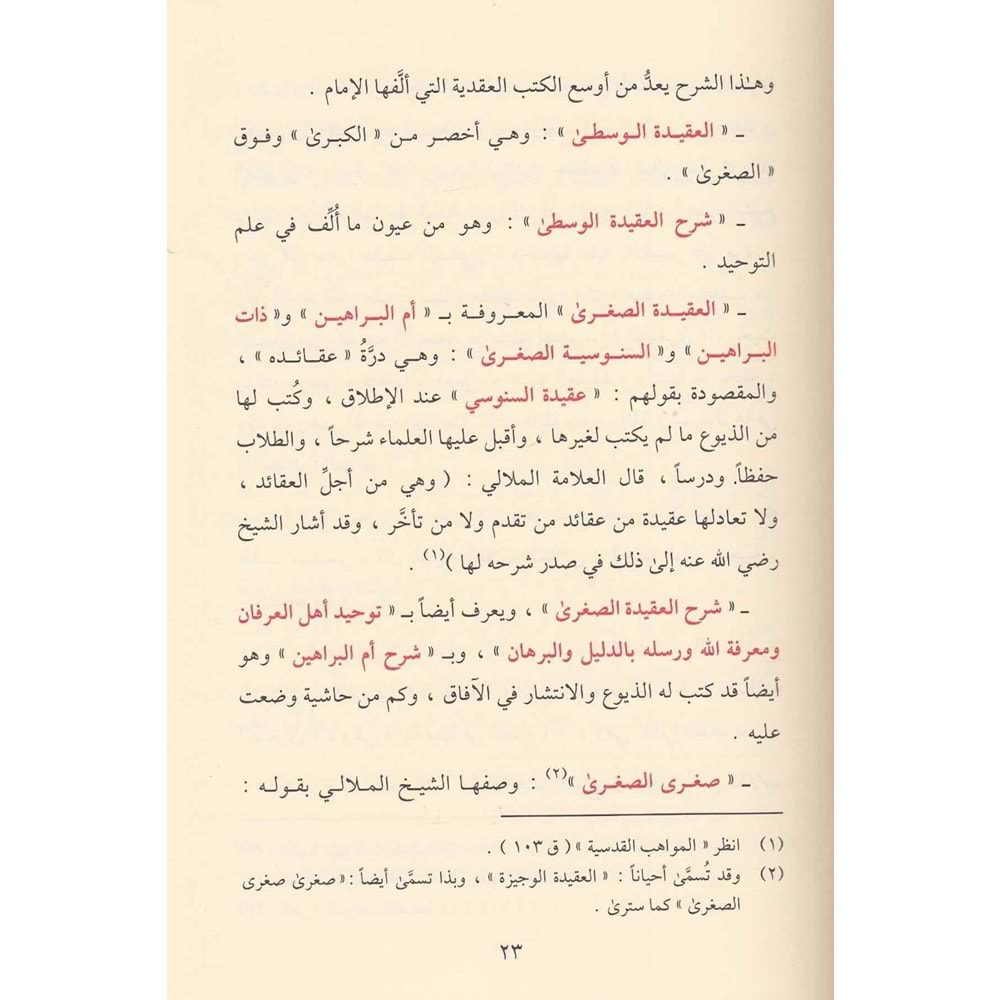 وهـٰذا الشرح يعدُّ من أوسع الكتب العقدية التي ألَّفها الإمام .
ـ « العقيدة الـوسطـىٰ » : وهـي أخصـر مـن « الكبـرىٰ » وفـوق
« الصغرىٰ » .
ـ « شرح العقيدة الوسطىٰ » : وهو من عيون ما أُلِّف في علم
التوحيد .
ـ « العقيدة الصغـرىٰ » المعـروفـة بـ « أم البـراهيـن » و« ذات
البـراهيـن » و« السنـوسيـة الصغـرىٰ » : وهـي درَّةُ « عقـائـده » ،
والمقصودة بقولهم : « عقيدة السنوسي » عند الإطلاق ، وكُتب لها
من الذيوع ما لم يكتب لغيرها ، وأقبل عليها العلماء شرحاً ، والطلاب
حفظاً. ودرساً ، قال العلامة الملالي : ( وهي من أجلِّ العقائد ،
ولا تعادلها عقيدة من عقائد من تقدم ولا من تأخَّر ، وقد أشار الشيخ
رضي الله عنه إلىٰ ذلك في صدر شرحه لها )(١) .
ـ « شرح العقيدة الصغرىٰ » ، ويعرف أيضاً بـ « توحيد أهل العرفان
ومعرفة الله ورسله بالدليل والبرهان » ، وبـ « شرح أم البراهين » وهو
أيضاً قد كتب له الذيوع والانتشار في الآفاق ، وكم من حاشية وضعت
عليه .
ـ « صغـرى الصغـرىٰ »(٢) : وصفهـا الشيـخ المـلالـي بقـولـه :
(١) انظر « المواهب القدسية » ( ق ١٠٣ ) .
(٢) وقد تُسمَّىٰ أحياناً : « العقيدة الوجيزة » ، وبذا تسمَّىٰ أيضاً : « صغرىٰ صغرى
الصغرىٰ » كما سترىٰ .
٢٣